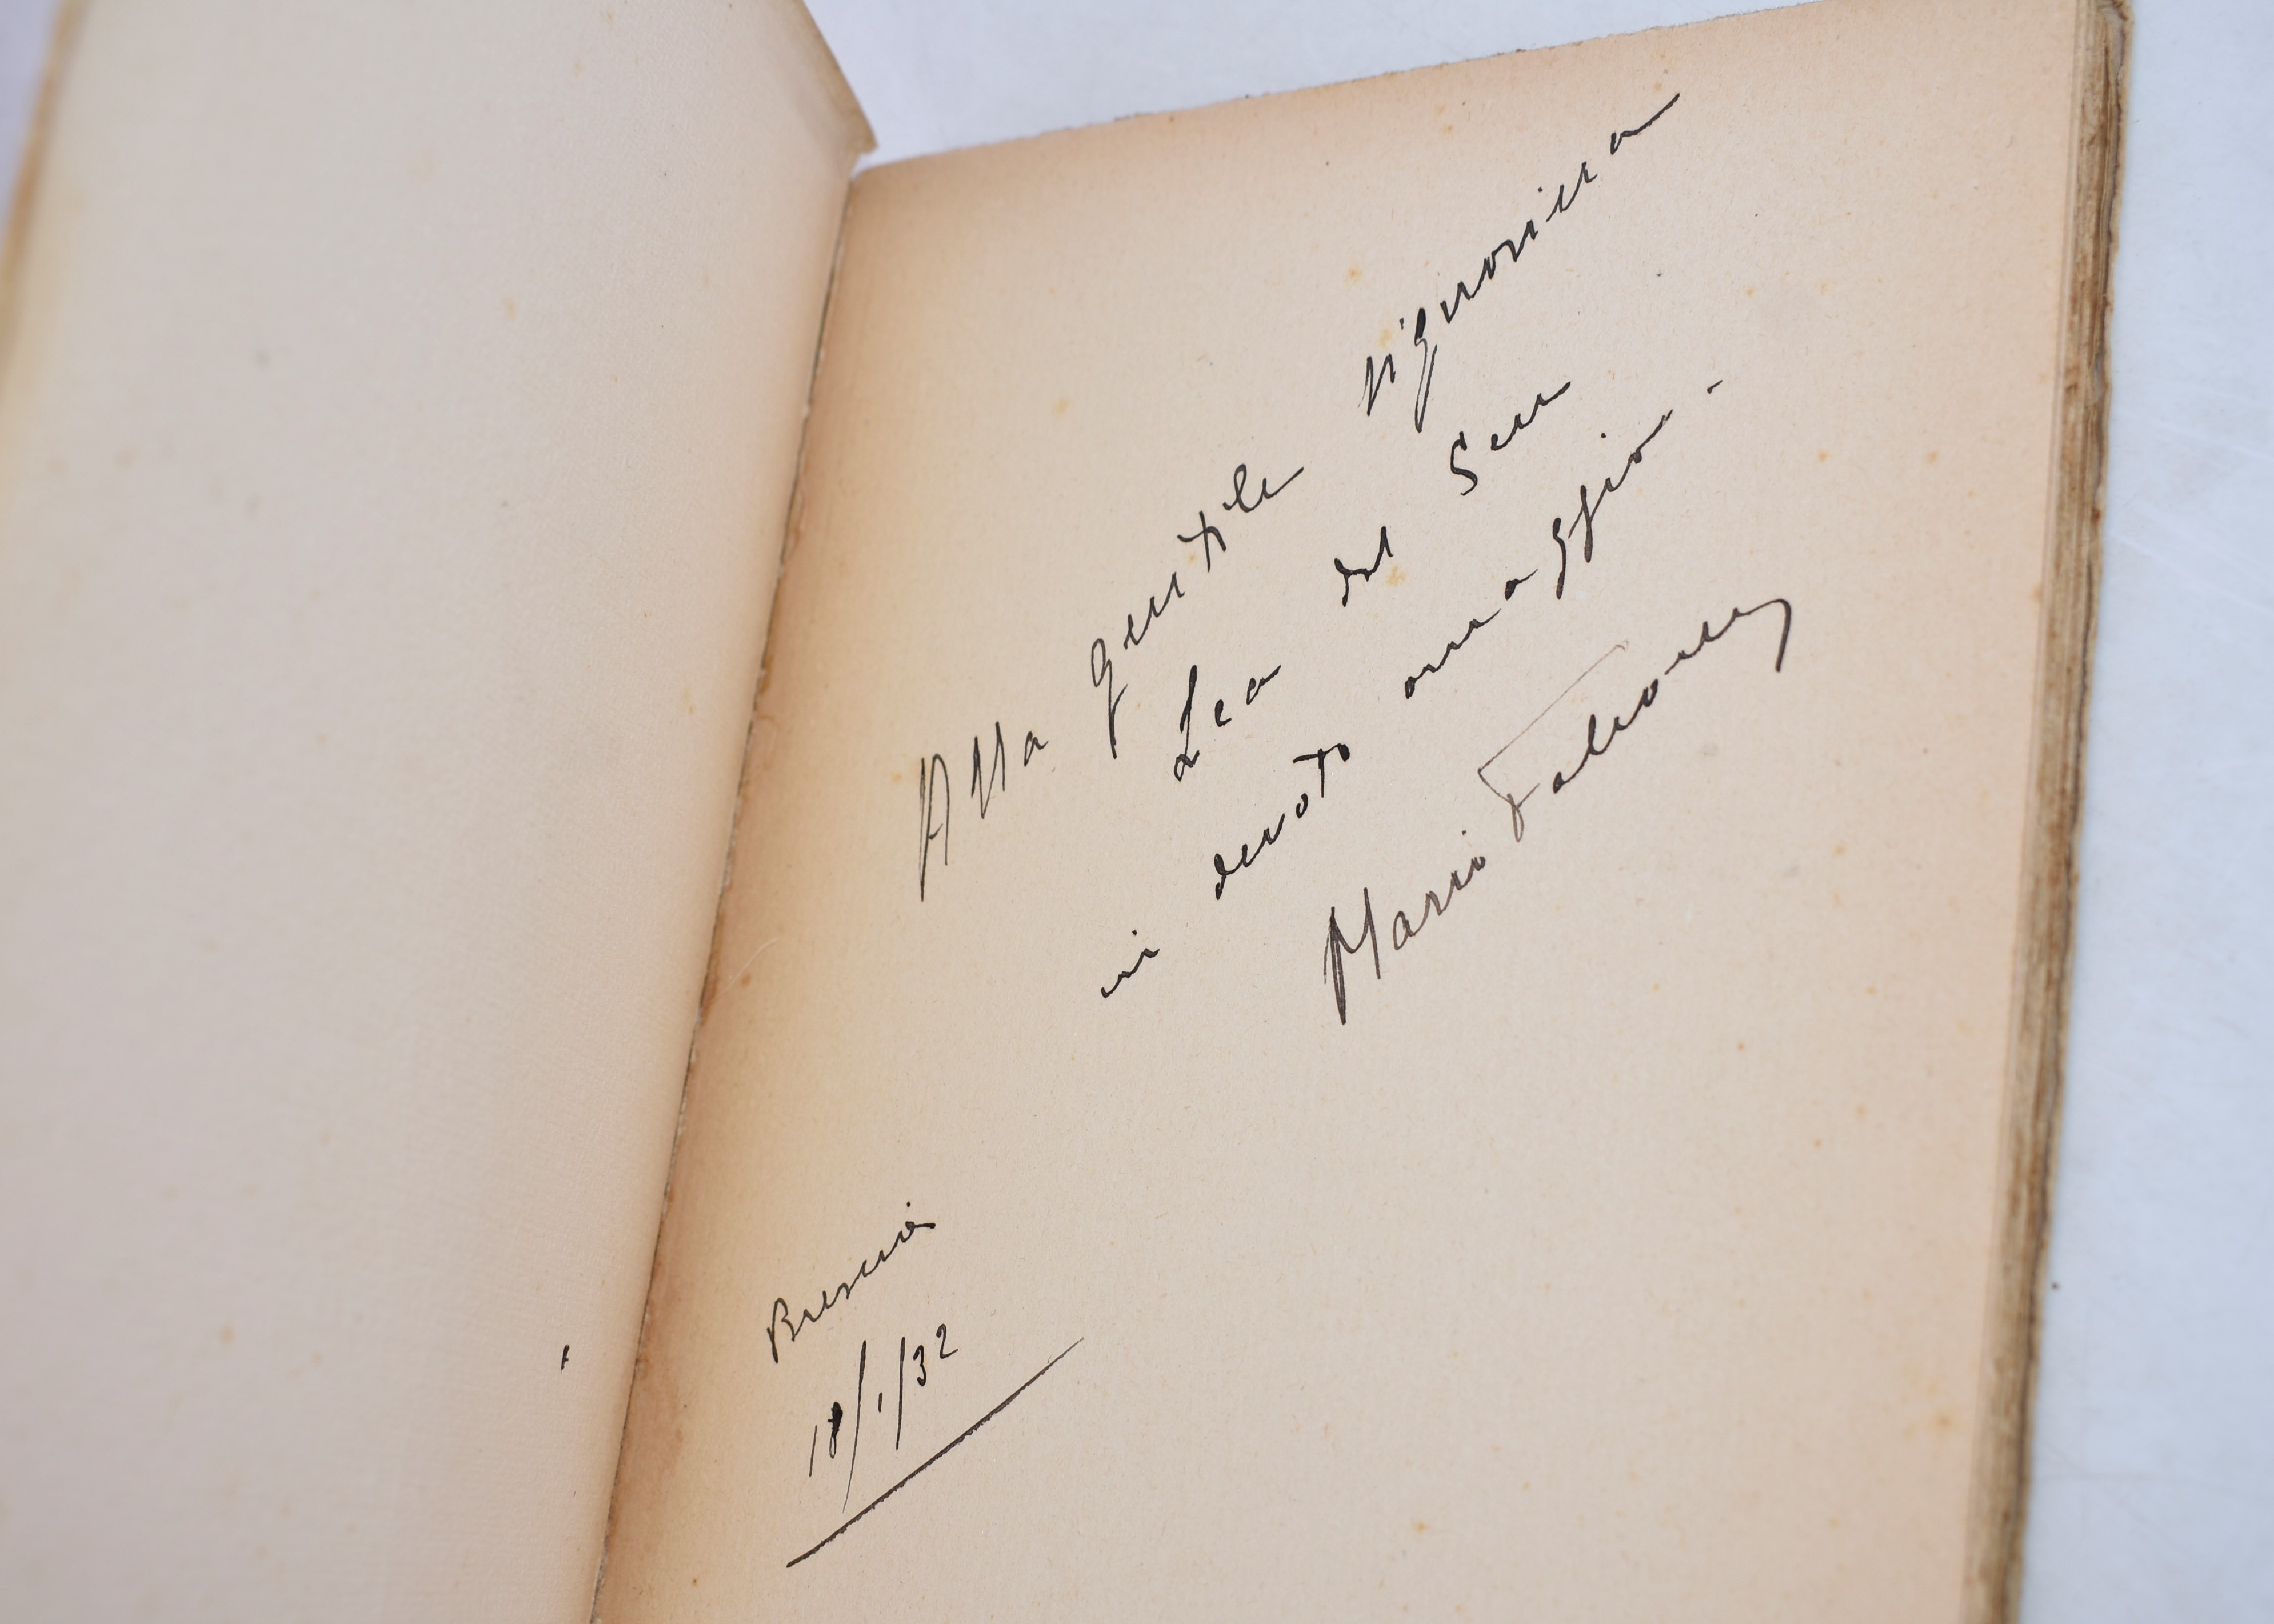 Alla gentile signorina
Lea dal Sen
in devoto omaggio.
Mario
Brescia
/1/32